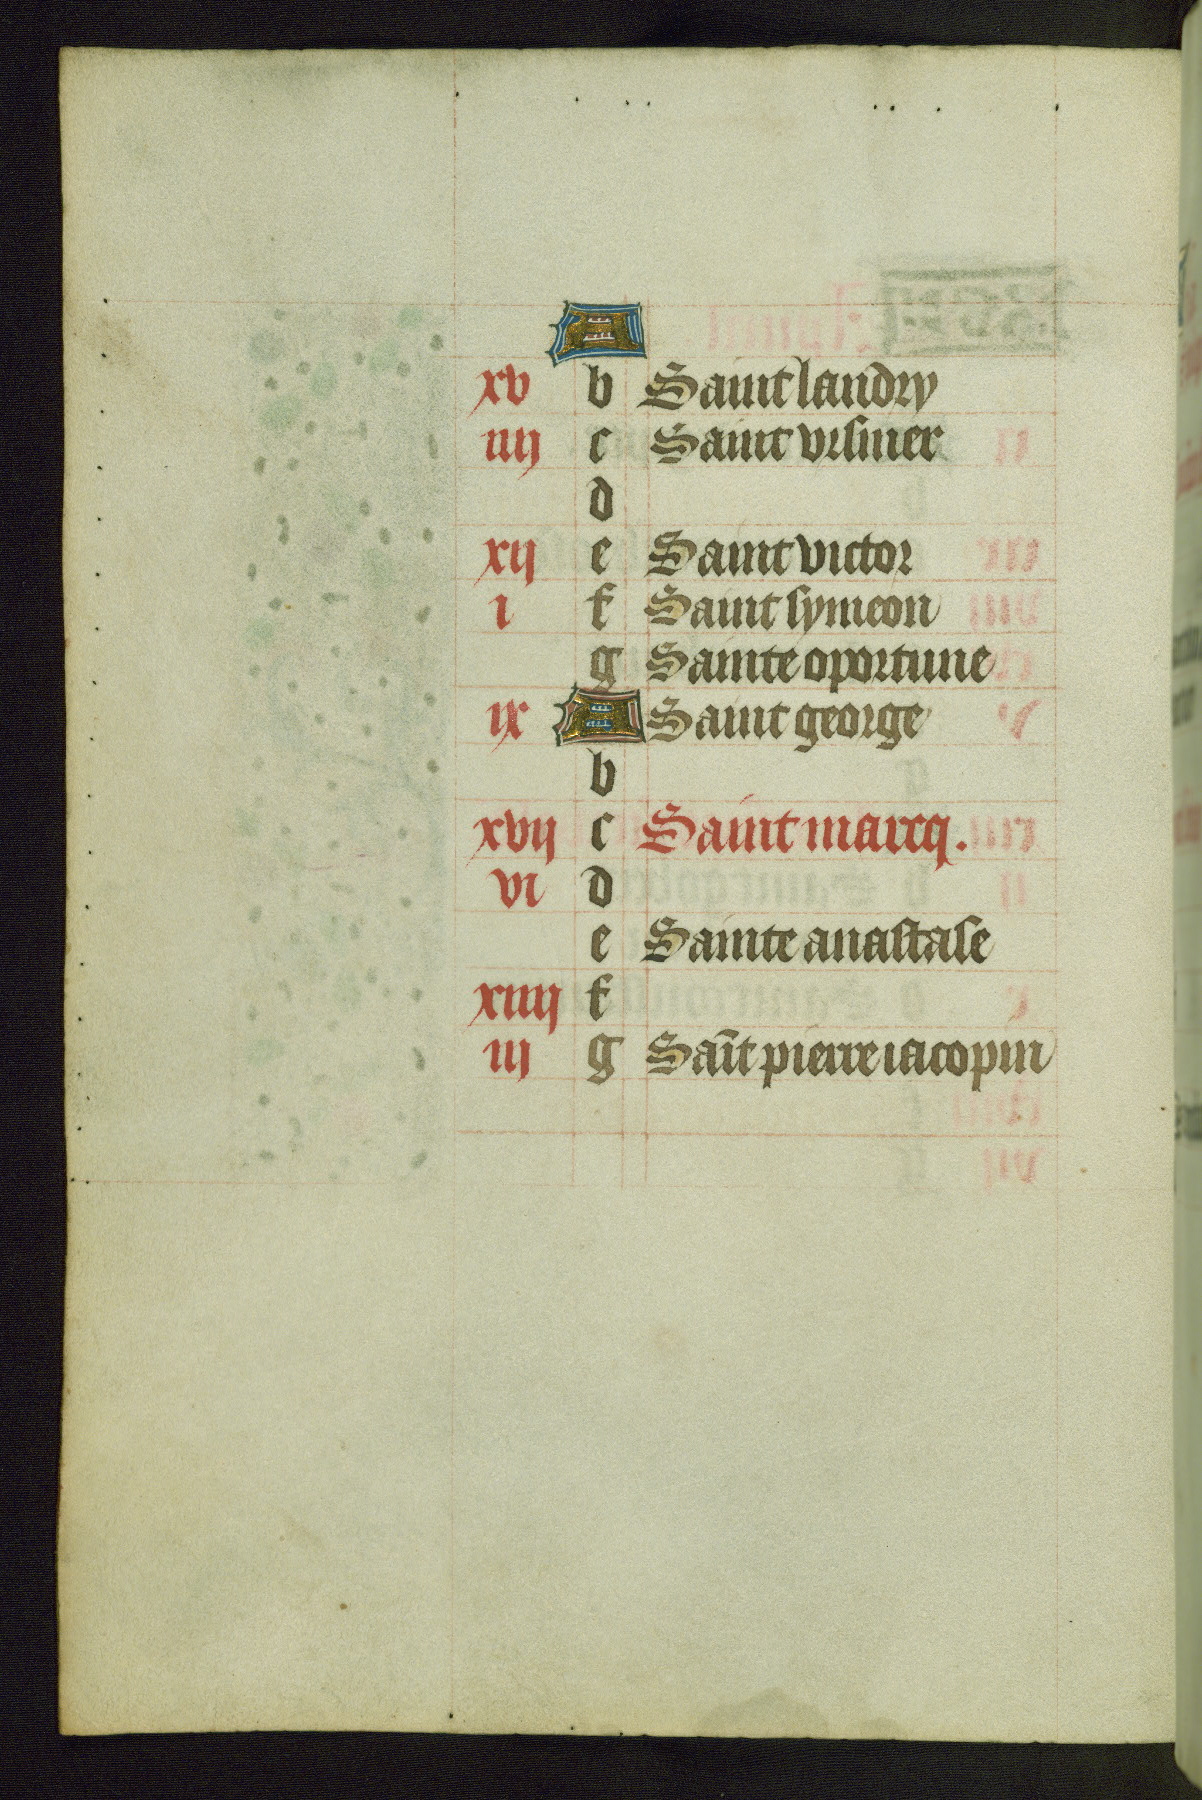 A
xv b Saint landry
iiij c Saint vrsmer
d
xij e Saint victor
i f Saint symeon
g Sainte oportune
ix A Saint george
b
xvij c Saint marcq.
vi d
e Sainte anastase
xiiij f
iij g Sait pierre iacopin